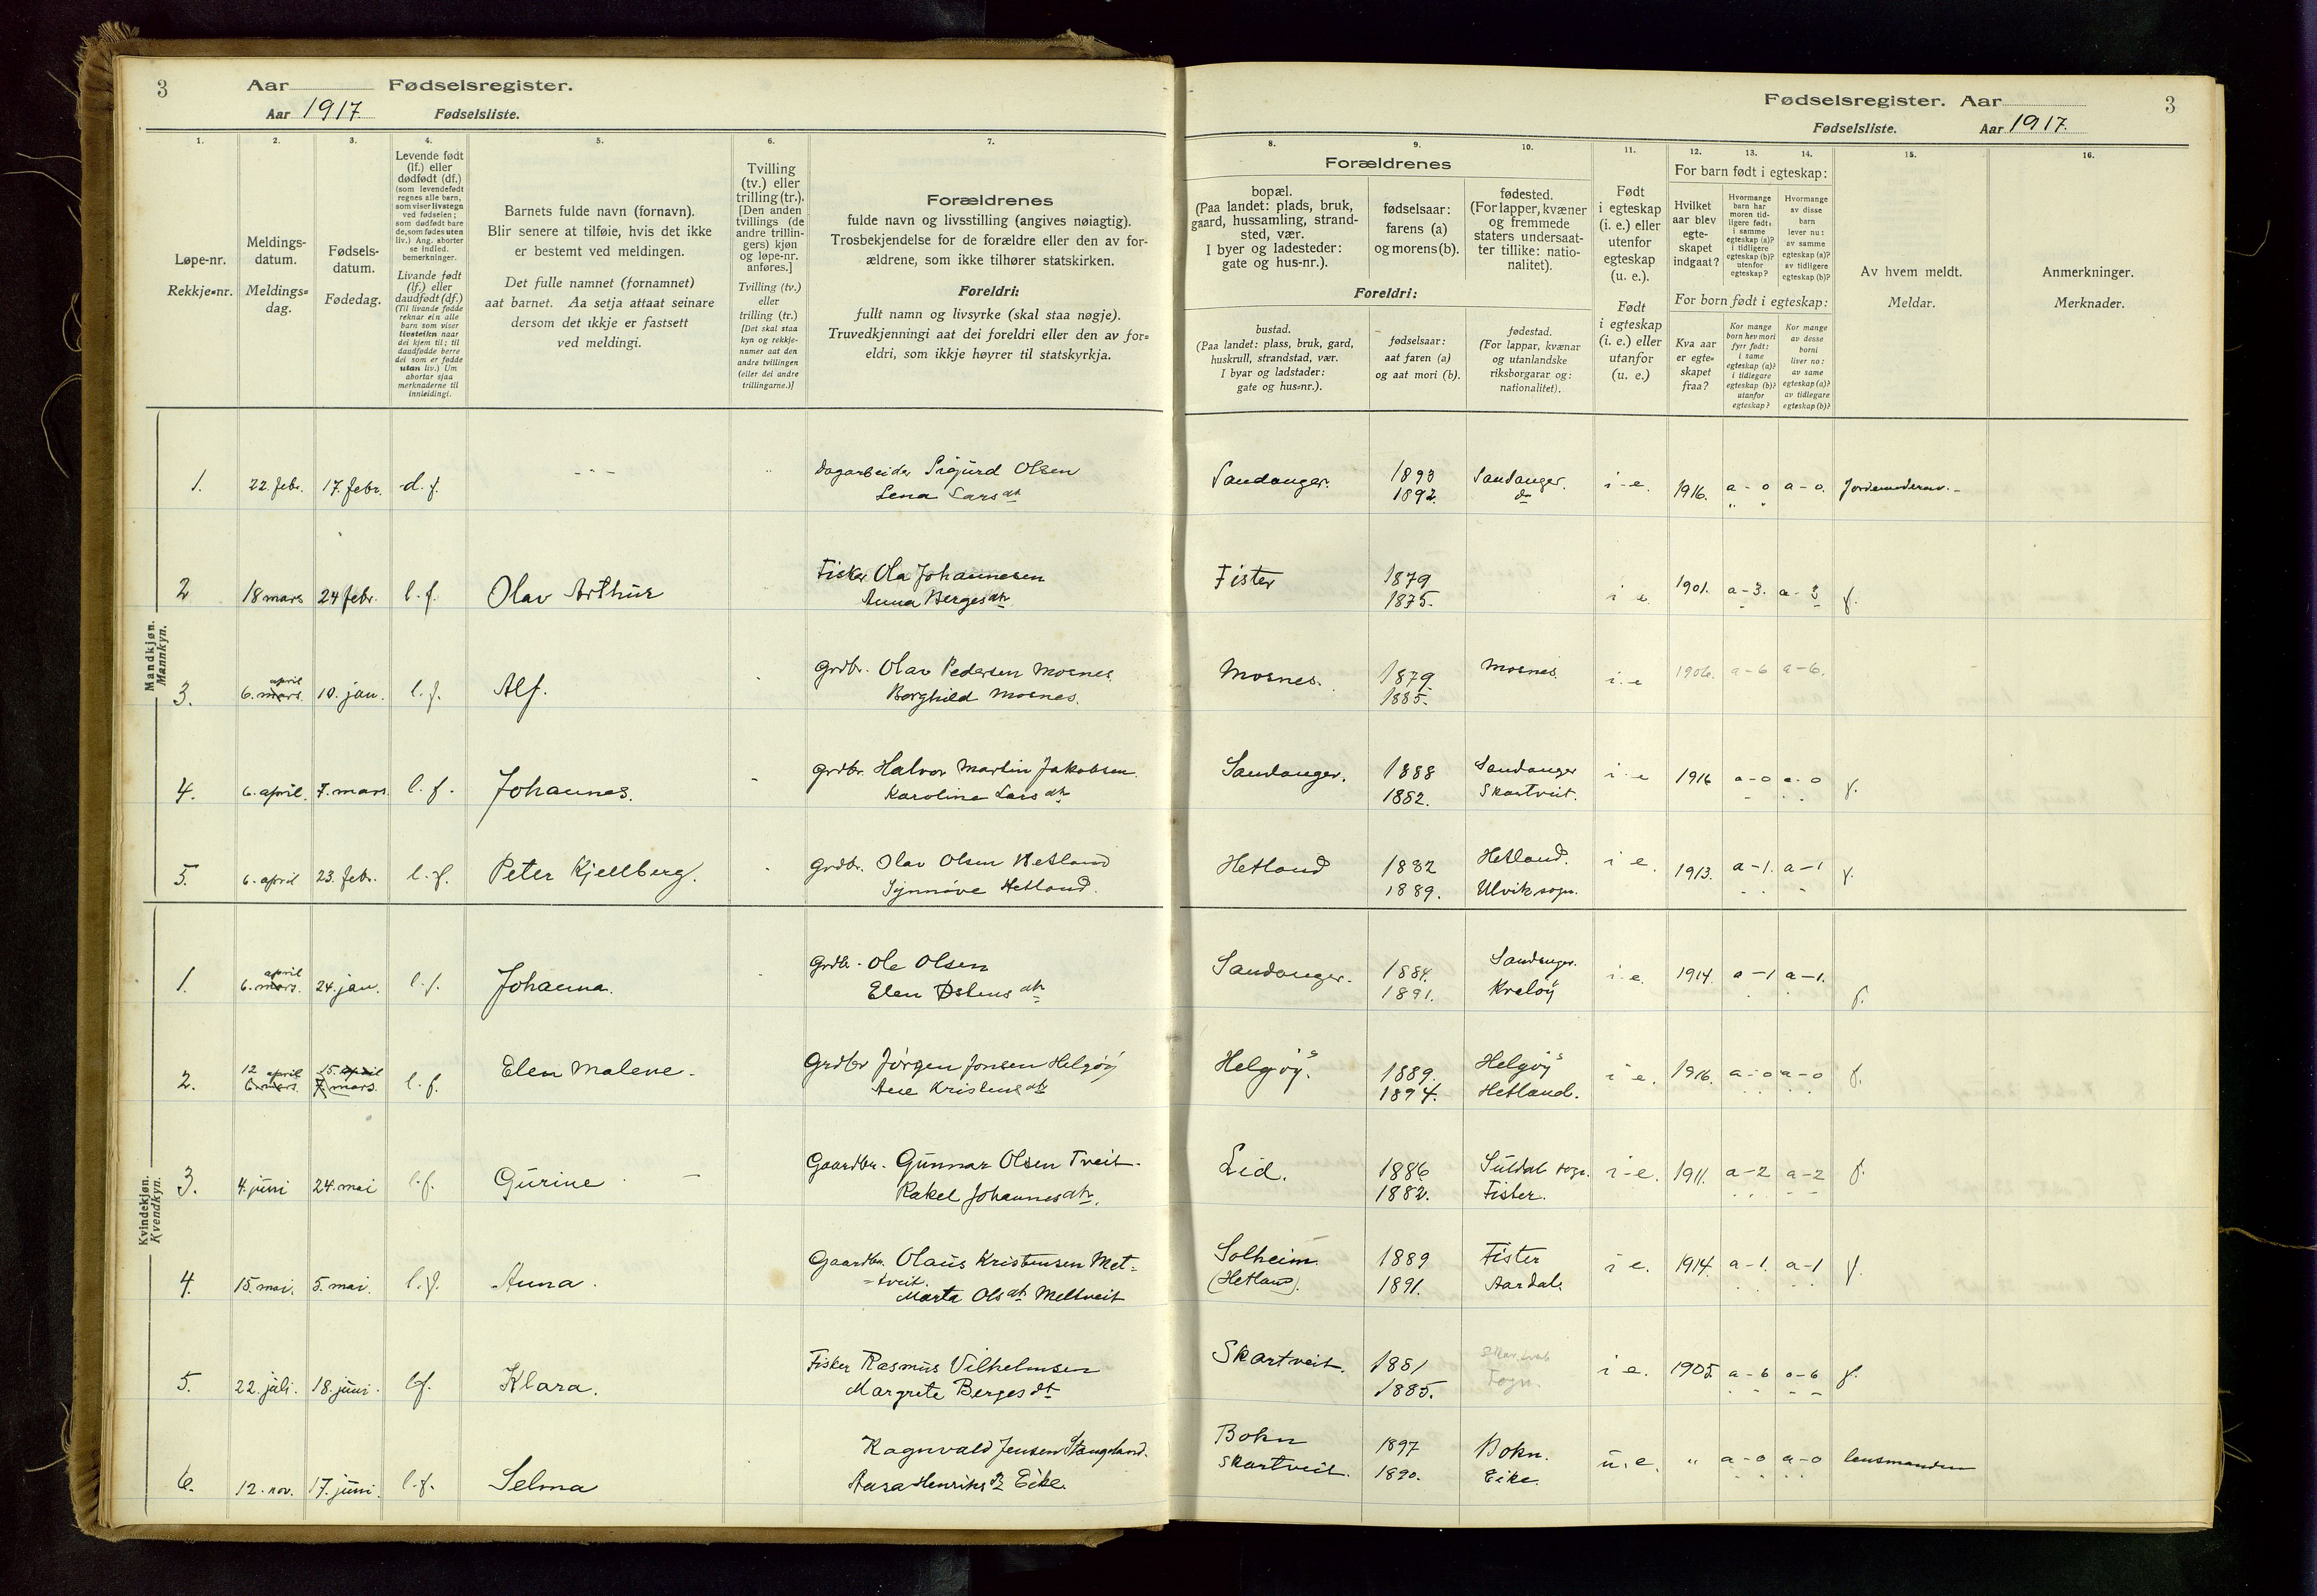 3
Aar Fødselsregister.
Aar 1917 Fødselsliste.
Fødselsregister. Aar
3
Fødselsliste. Aar 1917.
1. 2. 3. 4. 5. 6. 7.
Løpe-nr.
Rekkje-nr.
Meldings-
datum.
Meldings-
dag.
Fødsels-
datum.
Fødedag.
Levende født
(lf.) eller
dødfødt (df.)
(som levendefødt
regnes alle barn,
som viser livstegn
ved fødselen;
som dødfødt bare
de, som fødes uten
liv.) Ang. aborter
se indled.
bemerkninger.
Livande født
(lf.) eller
daudfødt (df.)
(Til livande fødde
reknar ein alle
barn som viser
livsteikn naar
dei kjem til; til
daudfødde berre
dei som er fødde
utan liv.) Um
abortar sjaa
merknaderne til
innleidingi.
Barnets fulde navn (fornavn).
Blir senere at tilføie, hvis det ikke
er bestemt ved meldingen.
Det fulle namnet (fornamnet)
aat barnet. Aa setja attaat seinare
dersom det ikkje er fastsett
ved meldingi.
Tvilling
(tv.) eller
trilling (tr.).
[Den anden
tvillings (de
andre trillin-
gers) kjøn
og løpe-nr.
anføres.]
Tvilling (tv.)
eller
trilling (tr.)
[Det skal staa
kyn og rekkje-
numer aat den
andre tvillingen
(eller dei andre
trillingarne.)]
Forældrenes
fulde navn og livsstilling (angives nøiagtig).
Trosbekjendelse for de forældre eller den av for-
ældrene, som ikke tilhører statskirken.
Foreldri:
fullt namn og livsyrke (skal staa nøgje).
Truvedkjenningi aat dei foreldri eller den av for-
eldri, som ikkje høyrer til statskyrkja.
8. 9. 10. 11. 12. 13. 14. 15. 16.
Forældrenes
bopæl.
(Paa landet: plads, bruk,
gaard, hussamling, strand-
sted, vær.
I byer og ladesteder:
gate og hus-nr.).
fødselsaar:
farens (a)
og morens (b).
fødested.
(For lapper, kvæner
og fremmede
staters undersaat-
ter tillike: natio-
nalitet).
Foreldri:
bustad.
(Paa landet: plass, bruk, gard,
huskrull, strandstad, vær.
I byar og ladstader:
gate og hus-nr.).
fødselsaar:
aat faren (a)
og aat mori (b).
fødestad.
(For lappar, kvænar
og utanlandske
riksborgarar og:
nationalitet).
Født
i egteskap
(i. e.) eller
utenfor
egteskap
(u. e.).
Født
i egteskap
(i. e.) eller
utanfor
(u. e.)
For barn født i egteskap:
Hvilket
aar blev
egte-
skapet
indgaat?
Hvormange
barn har
moren tid-
ligere født:
i samme
egteskap (a)?
i tidligere
egteskap (b)?
utenfor
egteskap?
Hvormange
av disse
barn
lever nu:
av samme
egteskap (a)?
av tidligere
egteskap (b)?
For born født i egteskap:
Kva aar
er egte-
skapet
fraa?
Kor mange
born hev mori
fyrr født:
i same
egteskap (a)?
i tidlegare
egteskap (b)?
utanfor
egteskap?
Kor mange
av desse
borni
liver no:
av same
egteskap (a)?
av tidlegare
egteskap (b)?
Av hvem meldt.
Meldar.
Anmerkninger.
Merknader.
Mandkjøn.
Mannkyn.
1. 22. febr. 17. febr. d. f. - - - Dagarbeider Sigurd Olsen
Lena Larsdtr
Sandanger. 1893 Sandanger. i - e. 1916. a - 0 a - 0. Jordemoderen.
1892. do
2 18 mars 24 febr. l. f. Olav Arthur Fisker Ola Johannesen
Anna Bergesdtr
Fister 1879 i e. 1901. a - 3. a - 3 f.
1875.
3. 6. mars. april 10. jan. l. f. Alf. Grdbr. Olav Pedersen Mosnes.
Borghild Mosnes.
Mosnes. 1879 Mosnes. i. e 1906. a - 6 a - 6.
1885.
4. 6. april. 7. mars. l. f. Johannes. Grdbr. Halvor Martin Jakobsen.
Karoline Larsdtr
Sandanger. 1888 Sandanger i. e 1916 a - 0 a - 0 f.
1882. Skartveit.
5. 6. april 23. febr. l. f. Peter Kjellberg. Grdbr. Olav Olsen Hetland
Synnøve Hetland.
Hetland 1882 Hetland. i e. 1913. a - 1. a - 1 f.
1889. Ulvik sogn.
Kvindekjøn.
Kvendkyn.
1. 6. mars. april 24. jan. l. f. Johanna. Grdbr. Ole Olsen
Elen Østensdtr
Sandanger. 1884. Sandanger. i. e. 1914. a - 1 a - 1. f.
1891. Kraløy
2. 12 april 6. mars. 15. april 7 mars. l. f. Elen Malene. Grdbr Jørgen Jonsen Helgøy
Ane Kristensdtr
Helgøy. 1889. Helgøy i e. 1916. a - 0 a - 0 f.
1894. Hetland.
3. 4. juni 24. mai l. f. Gurine - Gaardbr. Gunnar Olsen Tveit.
Rakel Johannesdtr.
Lid. 1886 Suldal sogn. i - e. 1911. a - 2 a - 2 f.
1882. Fister.
4. 15. mai. 5. mai. l. f. Anna. Gaardbr. Olaus Kristensen Met-
- tveit.
Marta Olsdtr Meltveit
Solheim. 1889 Fister i e. 1914. a - 1. a - 1 f.
(Hetland). 1891. Aardal.
5. 22. juli. 18. juni. l. f. Klara. Fisker Rasmus Vilhelmsen
Margrete Bergesdt
Skartveit. 1881 i e. 1905. a - 6 a - 6 f.
1885. Sogn.
6. 12. nov. 17. juni. l. f. Selma Ragnvald Jensen Stangeland.
Aasa Henriks Eike.
Bokn 1897 Bokn. u. e. " a - 0 a - 0 lensmanden
Skartveit. 1890. Eike.